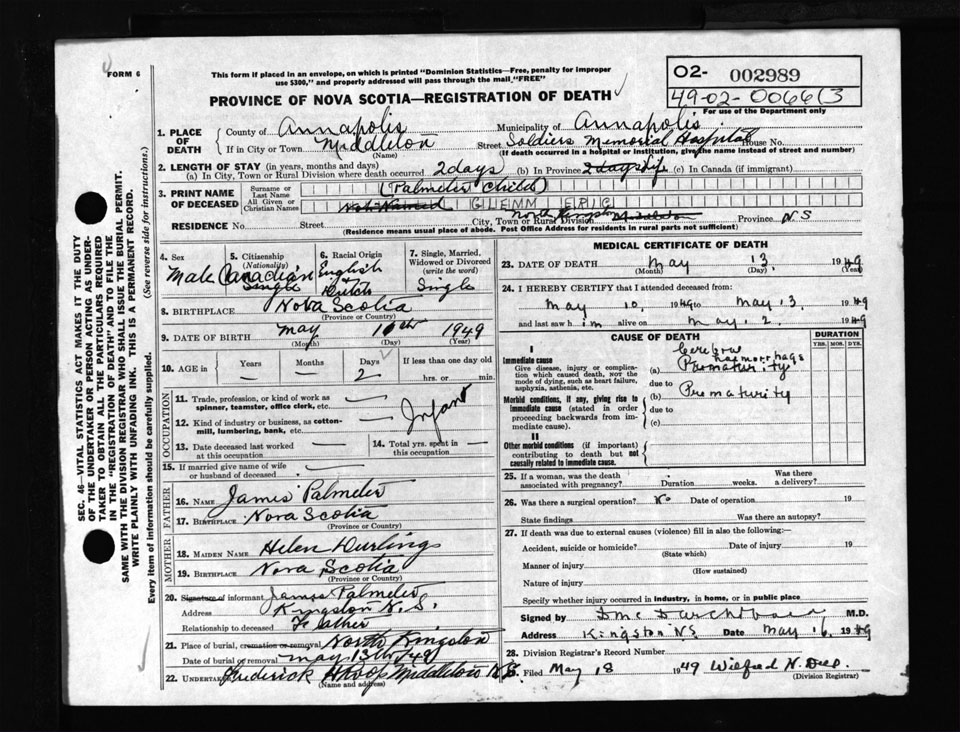 FORM 6
This form if placed in an envelope, on which is printed "Dominion Statistics—Free, penalty for improper
use $300," and properly addressed will pass through the mail "FREE"
PROVINCE OF NOVA SCOTIA—REGISTRATION OF DEATH
02- 002989
49-02-006613
For use of the Department only
1. PLACE OF DEATH
County of Annapolis Municipality of Annapolis
If in City or Town Middleton Street Soldiers Memorial Hospital House No.
(Name) (If death occurred in a hospital or institution, give the name instead of street and number)
2. LENGTH OF STAY (in years, months and days)
(a) In City, Town or Rural Division where death occurred 2 days (b) In Province 2 days Life (c) In Canada (if immigrant)
3. PRINT NAME OF DECEASED
Surname or Last Name (Palmeter Child)
All Given or Christian Names Not Named GLENN ERIC
North Kingston
RESIDENCE No. Street City, Town or Rural Division Middleton Province N S
(Residence means usual place of abode. Post Office Address for residents in rural parts not sufficient)
4. Sex
Male
5. Citizenship (Nationality)
Canadian
Single
6. Racial Origin
English
Dutch
7. Single, Married, Widowed or Divorced (write the word)
Single
8. BIRTHPLACE Nova Scotia
(Province or Country)
9. DATE OF BIRTH May 10th 1949
(Month) (Day) (Year)
10. AGE in Years Months Days If less than one day old
— — 2 hrs. or min.
OCCUPATION
11. Trade, profession, or kind of work as
spinner, teamster, office clerk, etc. —
12. Kind of industry or business, as cotton-
mill, lumbering, bank, etc. — Infant
13. Date deceased last worked at this occupation —
14. Total yrs. spent in this occupation —
15. If married give name of wife
or husband of deceased —
FATHER
16. NAME James Palmeter
17. BIRTHPLACE Nova Scotia
(Province or Country)
MOTHER
18. MAIDEN NAME Helen Durling
19. BIRTHPLACE Nova Scotia
(Province or Country)
20. Signature of informant James Palmeter
Address Kingston N.S.
Relationship to deceased Father
21. Place of burial, cremation or removal North Kingston
Date of burial or removal May 13th/49
22. UNDERTAKER Frederick Middleton N.S.
(Name and address)
MEDICAL CERTIFICATE OF DEATH
23. DATE OF DEATH May 13. 1949
(Month) (Day) (Year)
24. I HEREBY CERTIFY that I attended deceased from:
May 10, 1949 to May 13. 1949
and last saw him alive on May. 2. 1949
CAUSE OF DEATH
DURATION
YRS. MOS. DYS.
I
Immediate cause
Give disease, injury or complication which caused death, NOT the mode of dying, such as heart failure, asphyxia, asthenia, etc.
Cerebral haemorrhage
(a) Prematurity
due to
(b) Prematurity
Morbid conditions, if any, giving rise to immediate cause (stated in order proceeding backwards from immediate cause).
due to
(c)
II
Other morbid conditions (if important) contributing to death but not causally related to immediate cause.
25. If a woman, was the death associated with pregnancy? Duration weeks. Was there a delivery?
26. Was there a surgical operation? No Date of operation 19
State findings Was there an autopsy?
27. If death was due to external causes (violence) fill in also the following:—
Accident, suicide or homicide? Date of injury 19
(State which)
Manner of injury
(How sustained)
Nature of injury
Specify whether injury occurred in industry, in home, or in public place
Signed by M.D.
Address Kingston NS Date May 16 1949
28. Division Registrar's Record Number
Filed May 18 1949 Wilfred N.
(Division Registrar)
SEC. 46 VITAL STATISTICS ACT MAKES IT THE DUTY
OF THE UNDERTAKER OR PERSON ACTING AS UNDER-
TAKER TO OBTAIN ALL THE PARTICULARS REQUIRED
IN THE "REGISTRATION OF DEATH" AND TO FILE THE
SAME WITH THE DIVISION REGISTRAR WHO SHALL ISSUE THE BURIAL PERMIT.
WRITE PLAINLY WITH UNFADING INK. THIS IS A PERMANENT RECORD.
Every item of information should be carefully supplied. (See reverse side for instructions.)